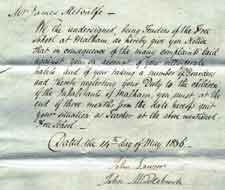 Mr James Metcalfe
We the undersigned, being Trustees of the Free
School at Malham, do hereby give you Notice
that in consequence of the many complaints laid
against you on account of your intemperate
habits and of your taking a number of Boarders
and thereby neglecting your Duty to the children
of the Inhabitants of Malham, you must at the
end of three months from the date hereof quit
your situation as Teacher at the above mentioned
Free School.
Dated the 24th day of May 1836.
John
John